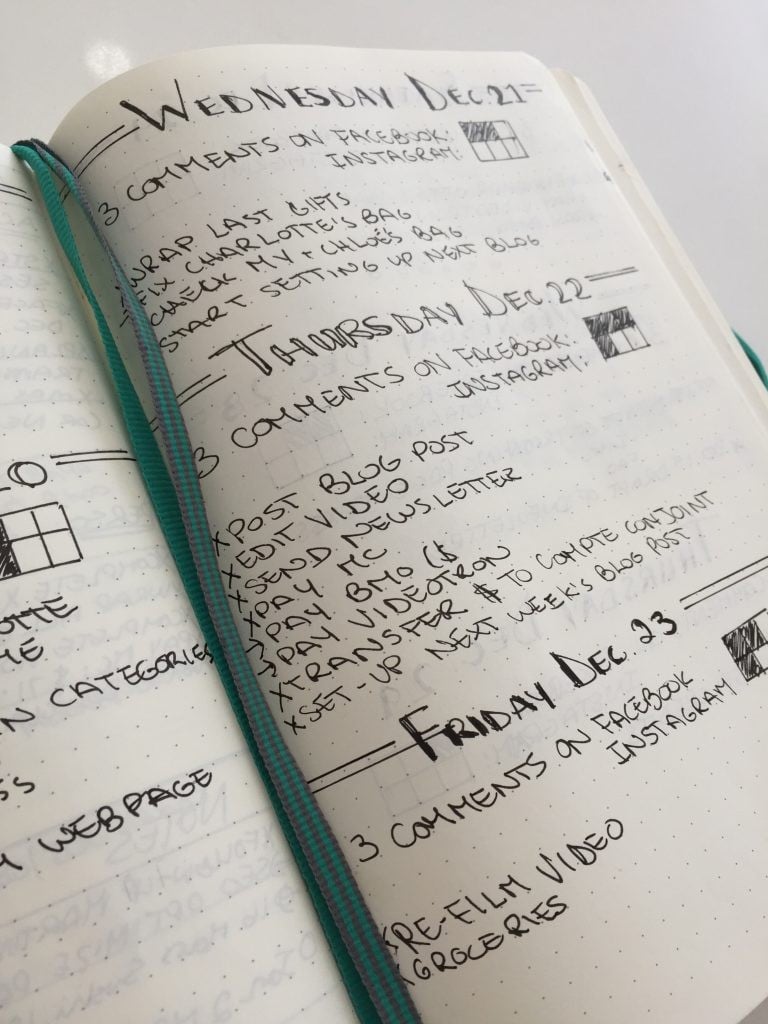 LO
OTTE
ME
N CATEGORIES
SS
WEBPAGE
NOTES
WEDNESDAY DEC. 21
3 COMMENTS ON FACEBOOK:
INSTAGRAM:
WRAP LAST GIFTS
FIX CHARLOTTE'S BAG
CHECK MY + CHLOÉ'S BAG
START SETTING UP NEXT BLOG
THURSDAY DEC. 22
3 COMMENTS ON FACEBOOK:
INSTAGRAM:
X POST BLOG POST
X EDIT VIDEO
X SEND NEWSLETTER
X PAY MC
> PAY BMO ($
> PAY VIDEOTRON
X TRANSFER $ TO COMPTE CONJOINT
X SET-UP NEXT WEEK'S BLOG POST
FRIDAY DEC. 23
3 COMMENTS ON FACEBOOK
INSTAGRAM
RE-FILM VIDEO
GROCERIES